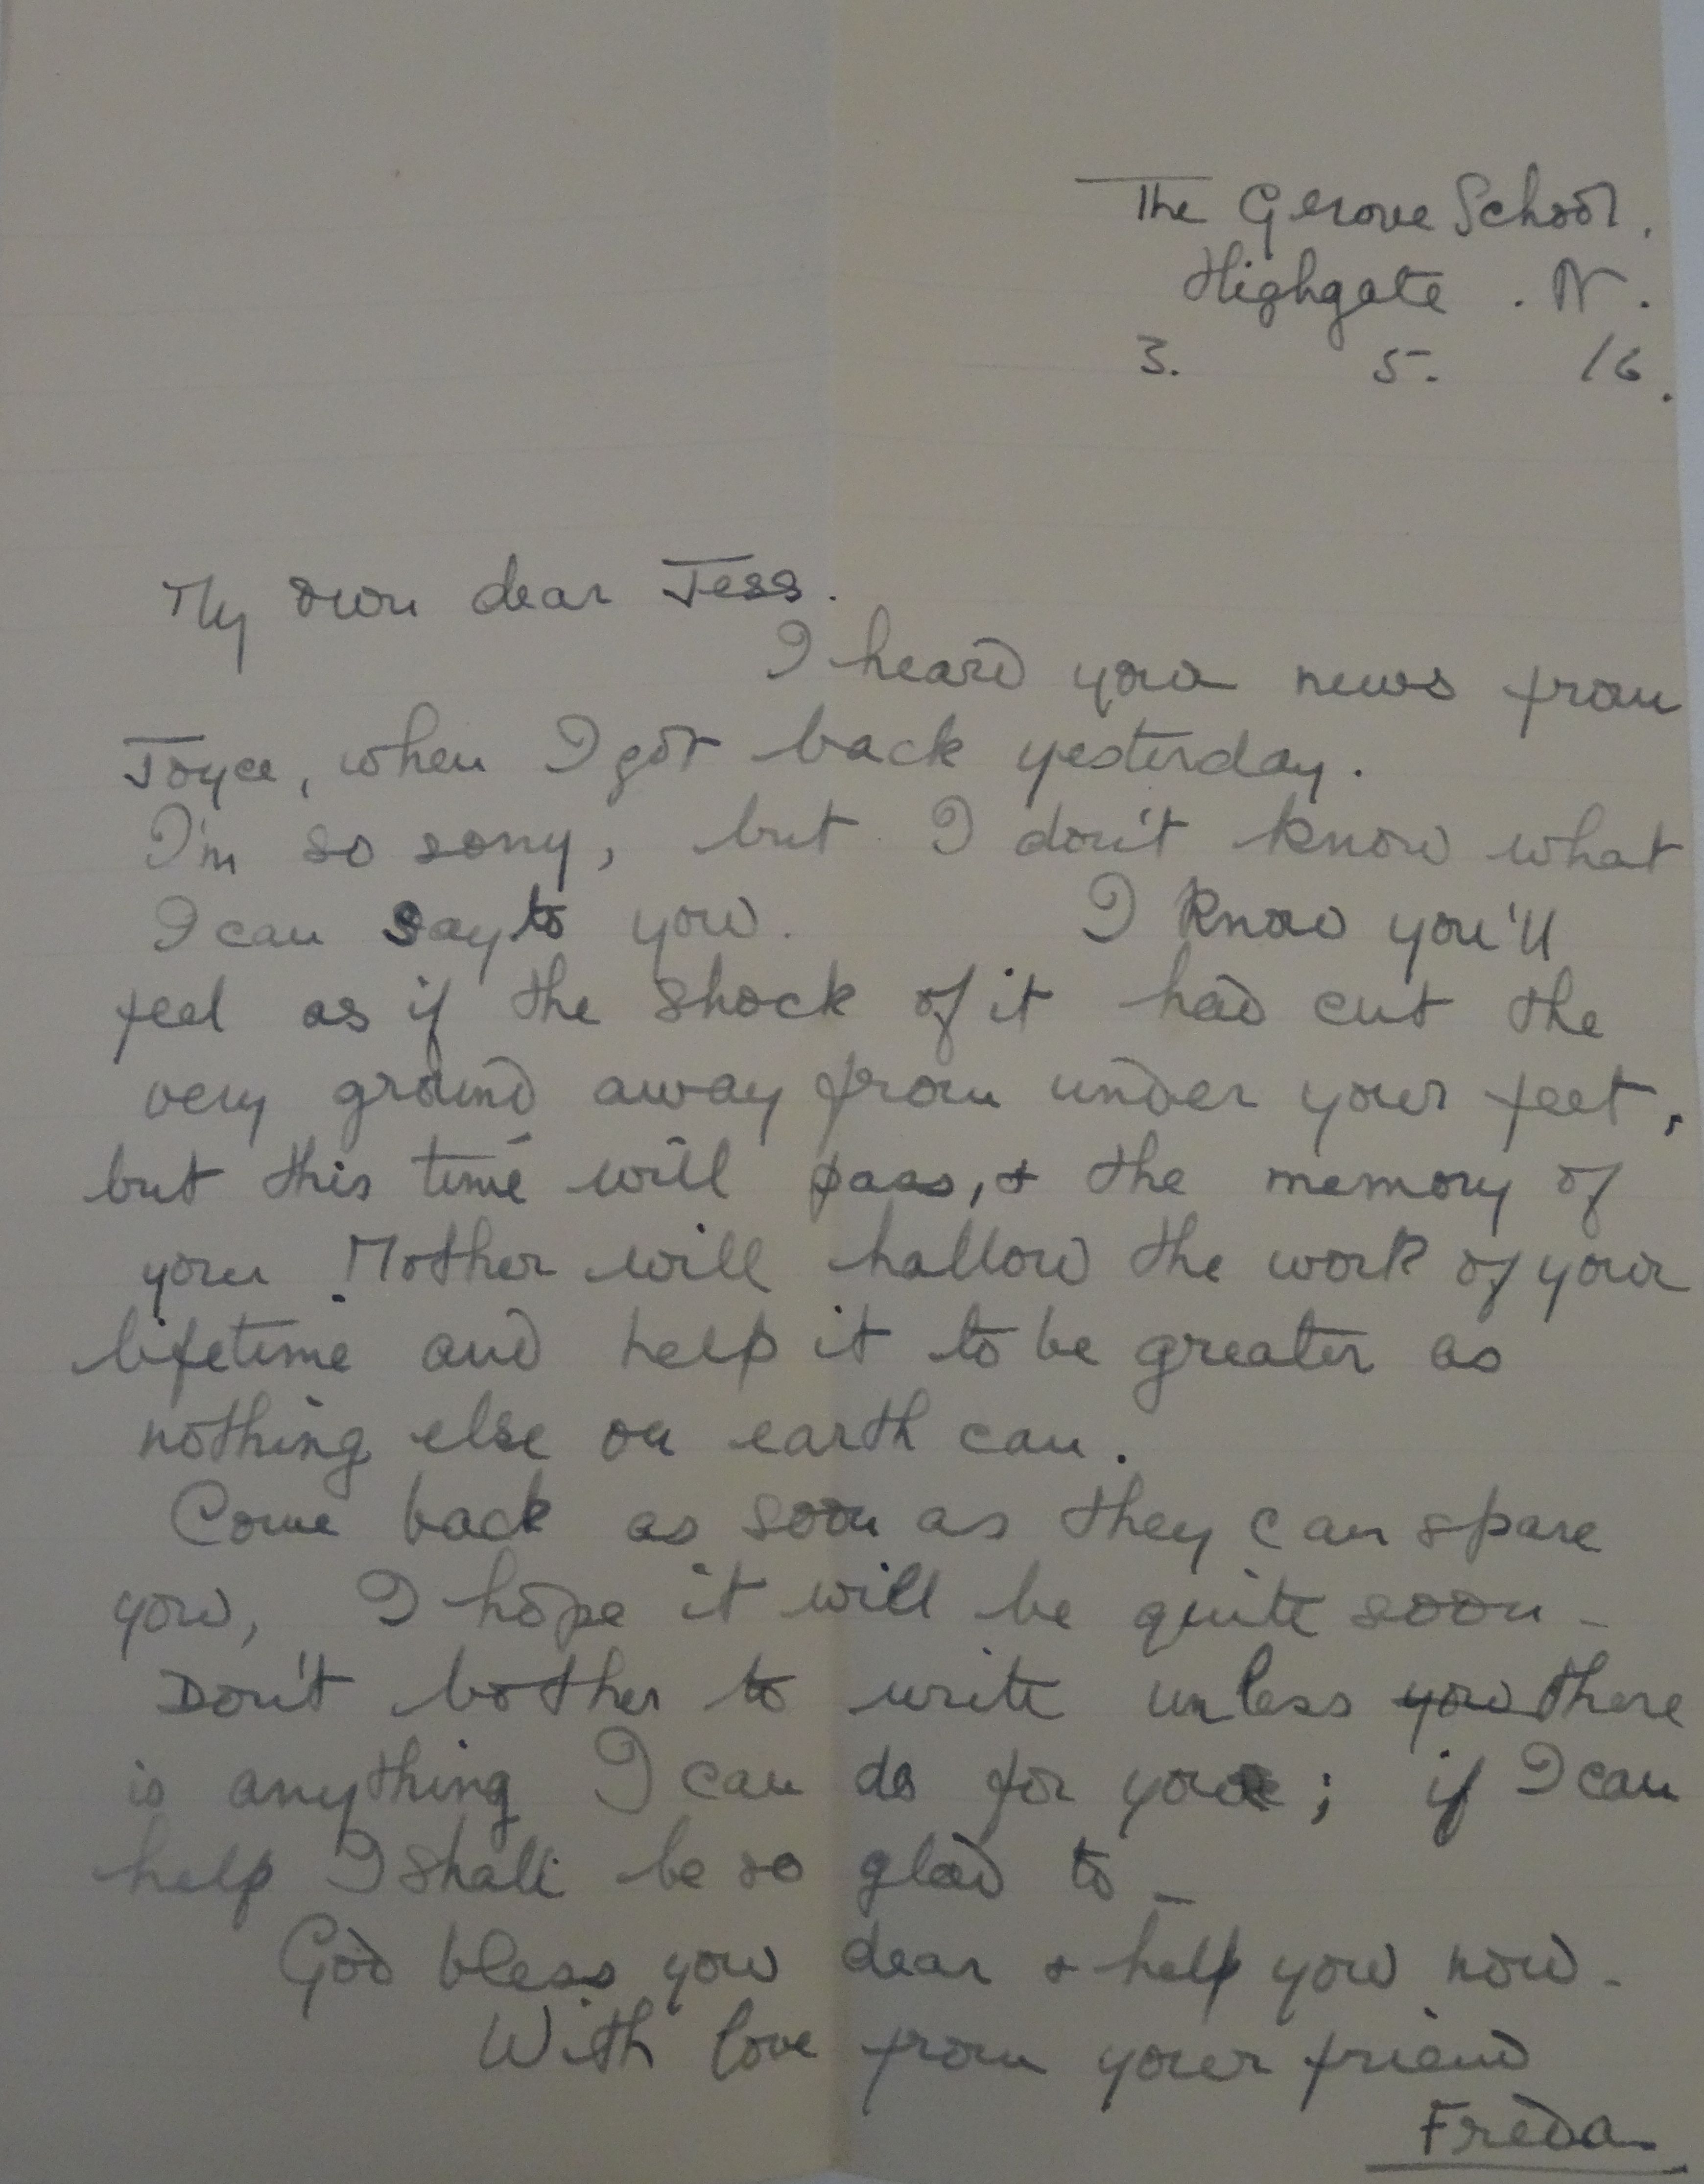 The Grove School,
Highgate . N.
3. 5. 16.
My own dear Jess.
I heard your news from
Joyce, when I got back yesterday.
I'm so sorry, but I don't know what
I can say to you. I know you'll
feel as if the shock of it had cut the
very ground away from under your feet,
but this time will pass, & the memory of
your Mother will hallow the work of your
lifetime and help it to be greater as
nothing else on earth can.
Come back as soon as they can spare
you, I hope it will be quite soon -
Don't bother to write unless you there
is anything I can do for you; if I can
help I shall be so glad to -
God bless you dear & help you now -
With love from your friend
Freda.